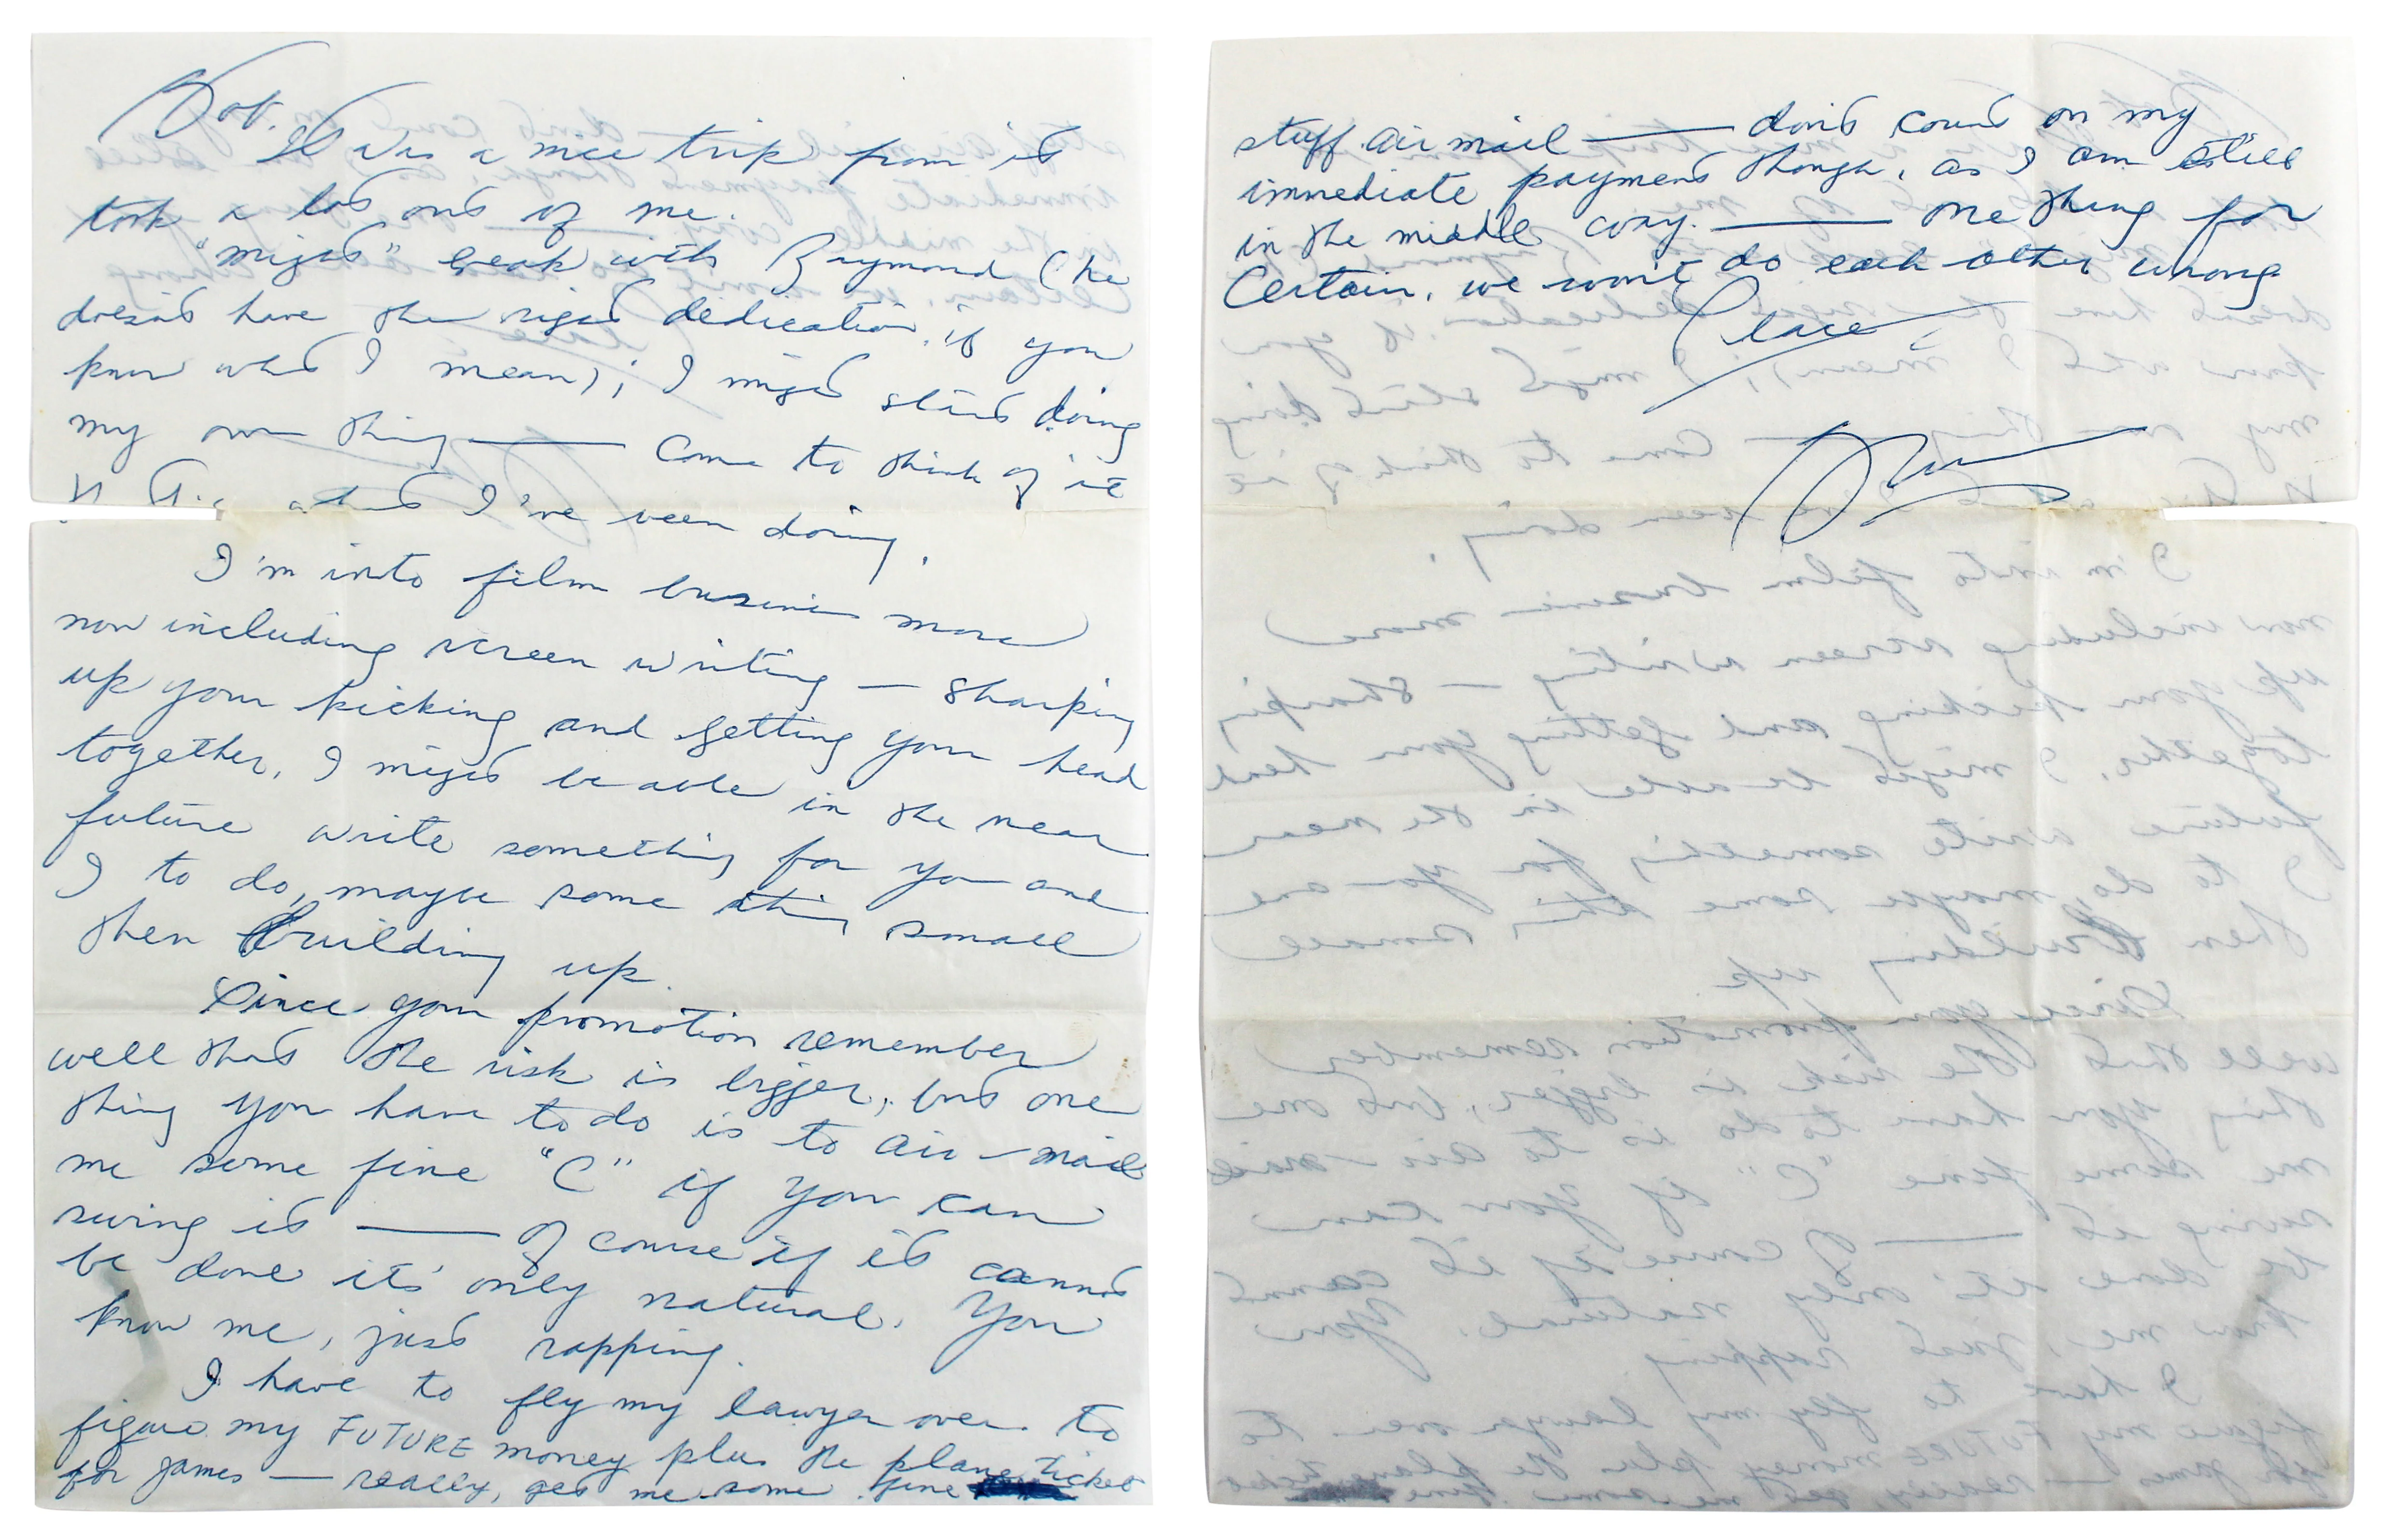 Bob.
It was a nice trip from it
took a lot out of me.
"might" break with Raymond (he
doesn't have the right dedication, if you
know what I mean); I might start doing
my own thing —— Come to think of it
what I've been doing.
I'm into film business more
now including screen writing — sharping
up your kicking and getting your head
together, I might be able in the near
future write something for you and
I to do, maybe some thing small
then building up.
Since your promotion remember
well that the risk is bigger, but one
thing you have to do is to air-mail
me some fine "C" if you can
swing it —— Of course if it cannot
be done it's only natural. You
know me, just rapping.
I have to fly my lawyer over to
figure my FUTURE money plus the plane ticket
for James — really, get me some fine
stuff air mail —— don't count on my
immediate payment though, as I am still
in the middle way. —— One thing for
Certain, we won't do each other wrong
Peace